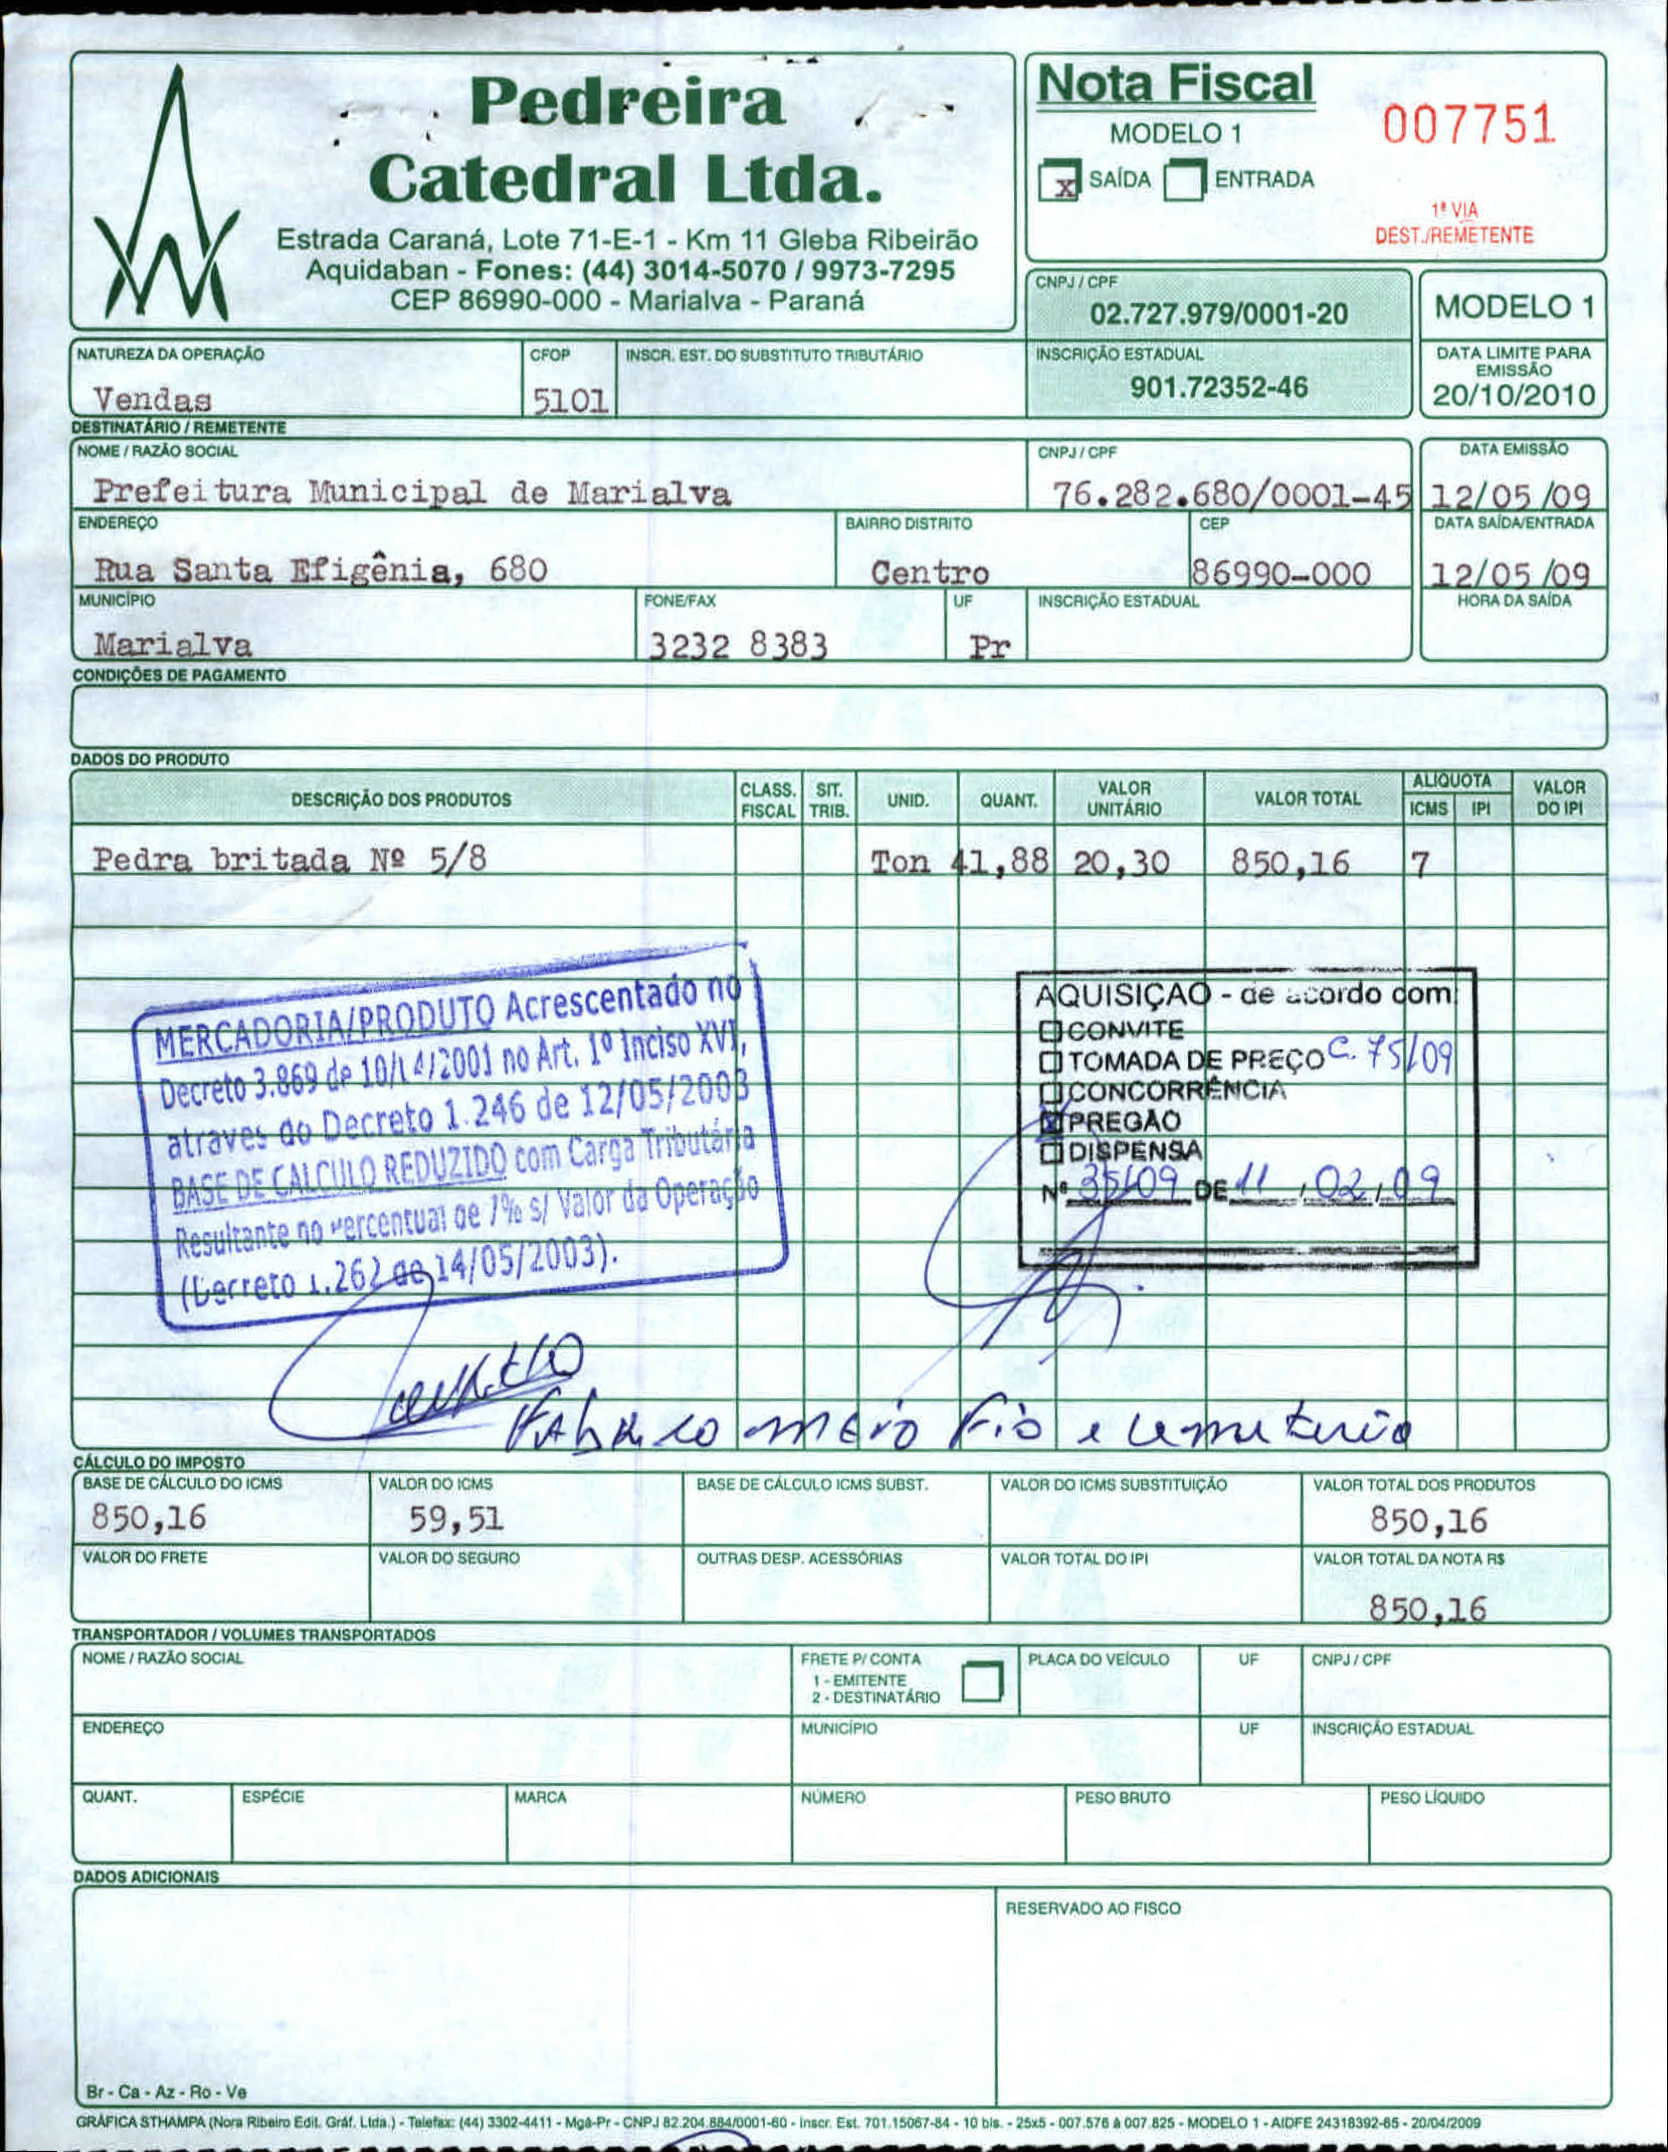 Pedreira
Catedral Ltda.
Estrada Caraná, Lote 71-E-1 - Km 11 Gleba Ribeirão
Aquidaban - Fones: (44) 3014-5070 / 9973-7295
CEP 86990-000 - Marialva - Paraná
Nota Fiscal
MODELO 1
007751
x SAÍDA ENTRADA
1ª VIA
DEST./REMETENTE
CNPJ / CPF
02.727.979/0001-20
MODELO 1
NATUREZA DA OPERAÇÃO CFOP INSCR. EST. DO SUBSTITUTO TRIBUTÁRIO INSCRIÇÃO ESTADUAL DATA LIMITE PARA EMISSÃO
Vendas 5101 901.72352-46 20/10/2010
DESTINATÁRIO / REMETENTE
NOME / RAZÃO SOCIAL CNPJ / CPF DATA EMISSÃO
Prefeitura Municipal de Marialva 76.282.680/0001-45 12/05/09
ENDEREÇO BAIRRO DISTRITO CEP DATA SAÍDA/ENTRADA
Rua Santa Efigênia, 680 Centro 86990-000 12/05/09
MUNICÍPIO FONE/FAX UF INSCRIÇÃO ESTADUAL HORA DA SAÍDA
Marialva 3232 8383 Pr
CONDIÇÕES DE PAGAMENTO
DADOS DO PRODUTO
DESCRIÇÃO DOS PRODUTOS CLASS. FISCAL SIT. TRIB. UNID. QUANT. VALOR UNITÁRIO VALOR TOTAL ALIQUOTA ICMS IPI VALOR DO IPI
Pedra britada Nº 5/8 Ton 41,88 20,30 850,16 7
MERCADORIA/PRODUTO Acrescentado no
Decreto 3.869 de 10/04/2001 no Art. 1º Inciso XVI,
atraves do Decreto 1.246 de 12/05/2003
BASE DE CALCULO REDUZIDO com Carga Tributária
Resultante no Percentual de 7% s/ Valor da Operação
(Decreto 1.262 de 14/05/2003).
AQUISIÇÃO - de acordo com
CONVITE
TOMADA DE PREÇO C. 75/09
CONCORRÊNCIA
PREGÃO
DISPENSA
Nº 35/09 DE 11 / 02 / 09
Fabrico meio fio e cemiterio
CÁLCULO DO IMPOSTO
BASE DE CÁLCULO DO ICMS VALOR DO ICMS BASE DE CÁLCULO ICMS SUBST. VALOR DO ICMS SUBSTITUIÇÃO VALOR TOTAL DOS PRODUTOS
850,16 59,51 850,16
VALOR DO FRETE VALOR DO SEGURO OUTRAS DESP. ACESSÓRIAS VALOR TOTAL DO IPI VALOR TOTAL DA NOTA R$
850,16
TRANSPORTADOR / VOLUMES TRANSPORTADOS
NOME / RAZÃO SOCIAL FRETE P/ CONTA PLACA DO VEÍCULO UF CNPJ / CPF
1 - EMITENTE
2 - DESTINATÁRIO
ENDEREÇO MUNICÍPIO UF INSCRIÇÃO ESTADUAL
QUANT. ESPÉCIE MARCA NÚMERO PESO BRUTO PESO LÍQUIDO
DADOS ADICIONAIS
RESERVADO AO FISCO
Br - Ca - Az - Ro - Ve
GRÁFICA STHAMPA (Nora Ribeiro Edit. Gráf. Ltda.) - Telefax: (44) 3302-4411 - Mgá-Pr - CNPJ 82.204.884/0001-60 - Inscr. Est. 701.15067-84 - 10 bls. - 25x5 - 007.576 à 007.825 - MODELO 1 - AIDFE 24318392-85 - 20/04/2009